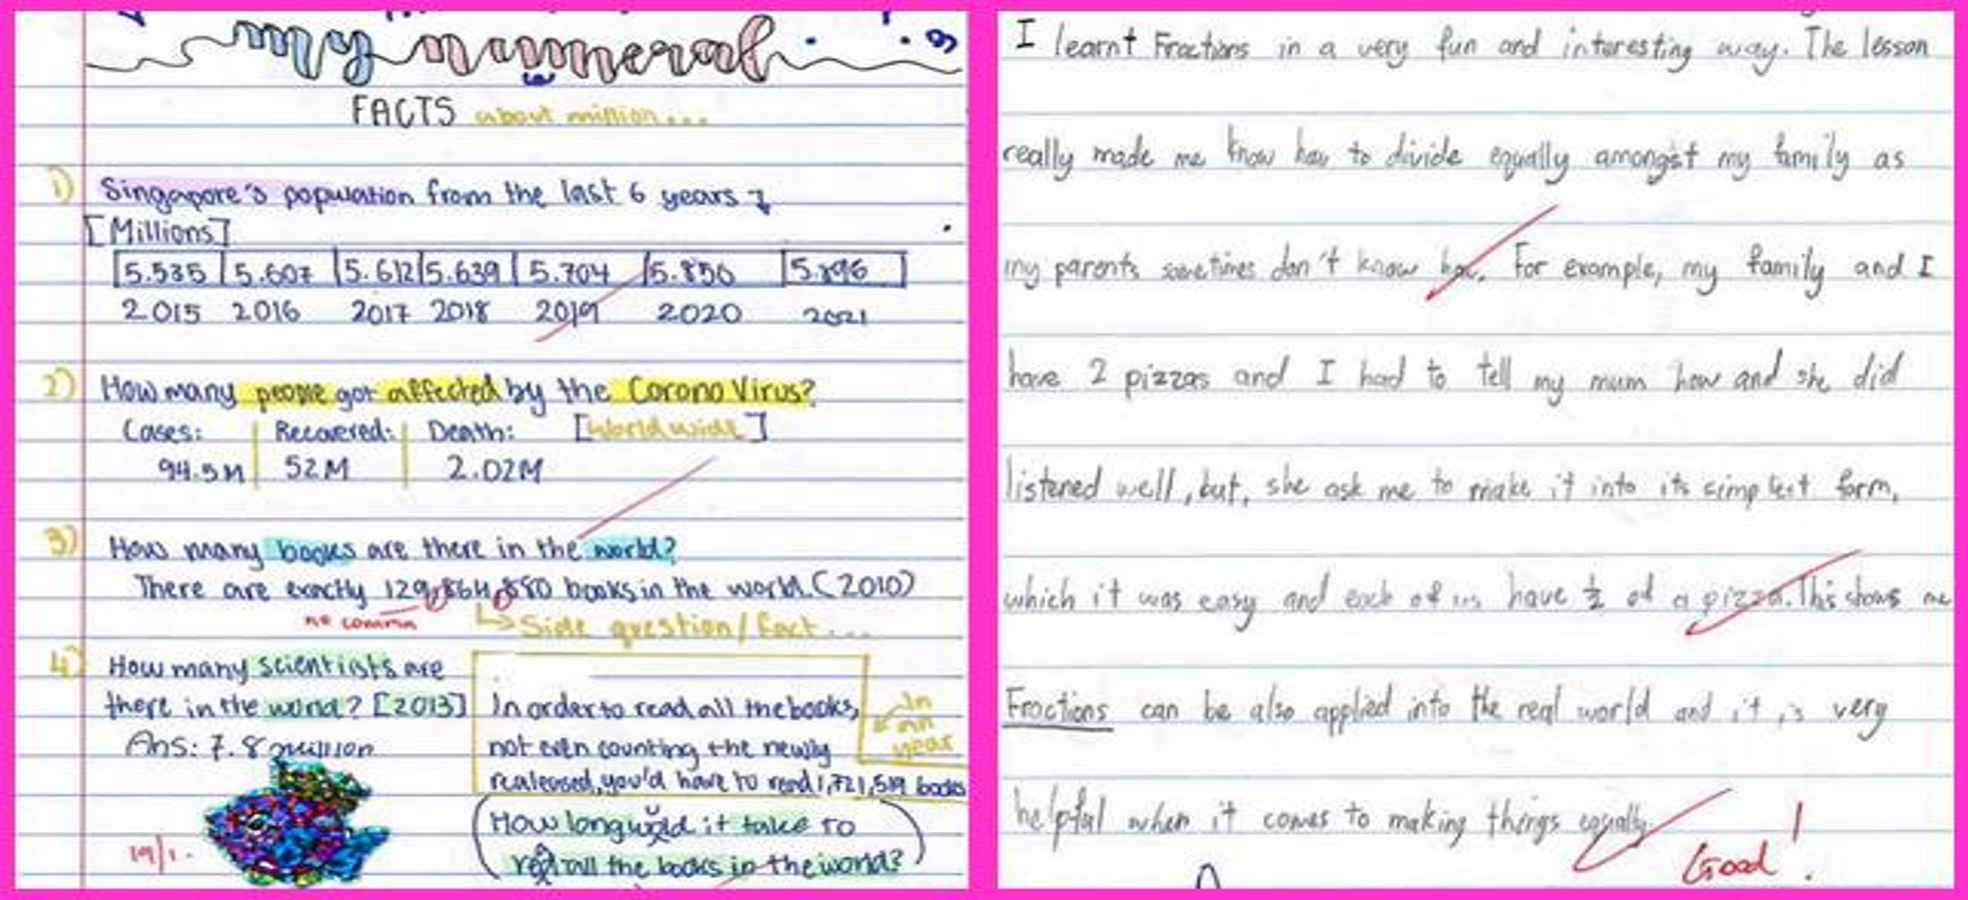 my numeral
FACTS about million...
1) Singapore's population from the last 6 years
[Millions]
5.535 5.607 5.612 5.639 5.704 5.850 5.896
2015 2016 2017 2018 2019 2020 2021
2) How many people got affected by the Corono Virus?
Cases: Recovered: Death: [Worldwide]
94.5M 52M 2.02M
3) How many books are there in the world?
There are exactly 129,864,880 books in the world. (2010)
no comma
Side question/fact...
4) How many scientists are
there in the world? [2013]
Ans: 7.8 million
In order to read all the books,
not even counting the newly
realeased, you'd have to read 1,721,519 books
In
an
year
(How long would it take to
read all the books in the world?)
19/1.
I learnt Fractions in a very fun and interesting way. The lesson
really made me know how to divide equally amongst my family as
my parents sometimes don't know how. For example, my family and I
have 2 pizzas and I had to tell my mum how and she did
listened well, but, she ask me to make it into its simplest form,
which it was easy and each of us have ½ of a pizza. This shows me
Fractions can be also applied into the real world and it is very
helpful when it comes to making things equally.
Good!